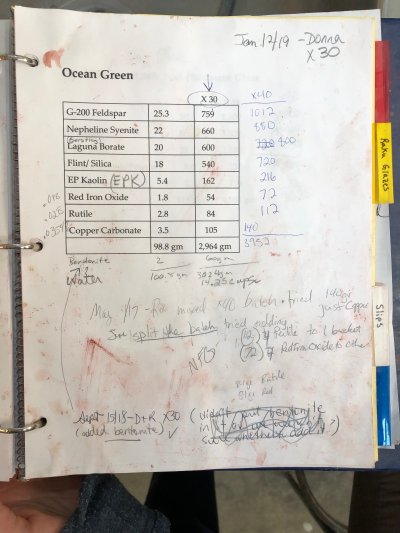 Jan 12/19 - Donna
x 30
Ocean Green
X 30
x40
G-200 Feldspar 25.3 759 1012
Nepheline Syenite 22 660 880
(Gerstley)
Laguna Borate 20 600 800
Flint/ Silica 18 540 720
EP Kaolin (EPK) 5.4 162 216
Red Iron Oxide 1.8 54 72
Rutile 2.8 84 112
Copper Carbonate 3.5 105 140
98.8 gm 2,964 gm 3952
Bentonite 2 60gm
Water 100.8gm 3024gm
14.25 cups
May 9/17 - mixed x40 batch - tried just Copper
split the batch tried adding
(112) g Rutile to 1 bucket
(72) g Red Iron Oxide to other
Rutile
Red
Sept 15/18 - D+K x30
(added bentonite) ✓
(didn't put bentonite
in
Raku Glazes
Slips